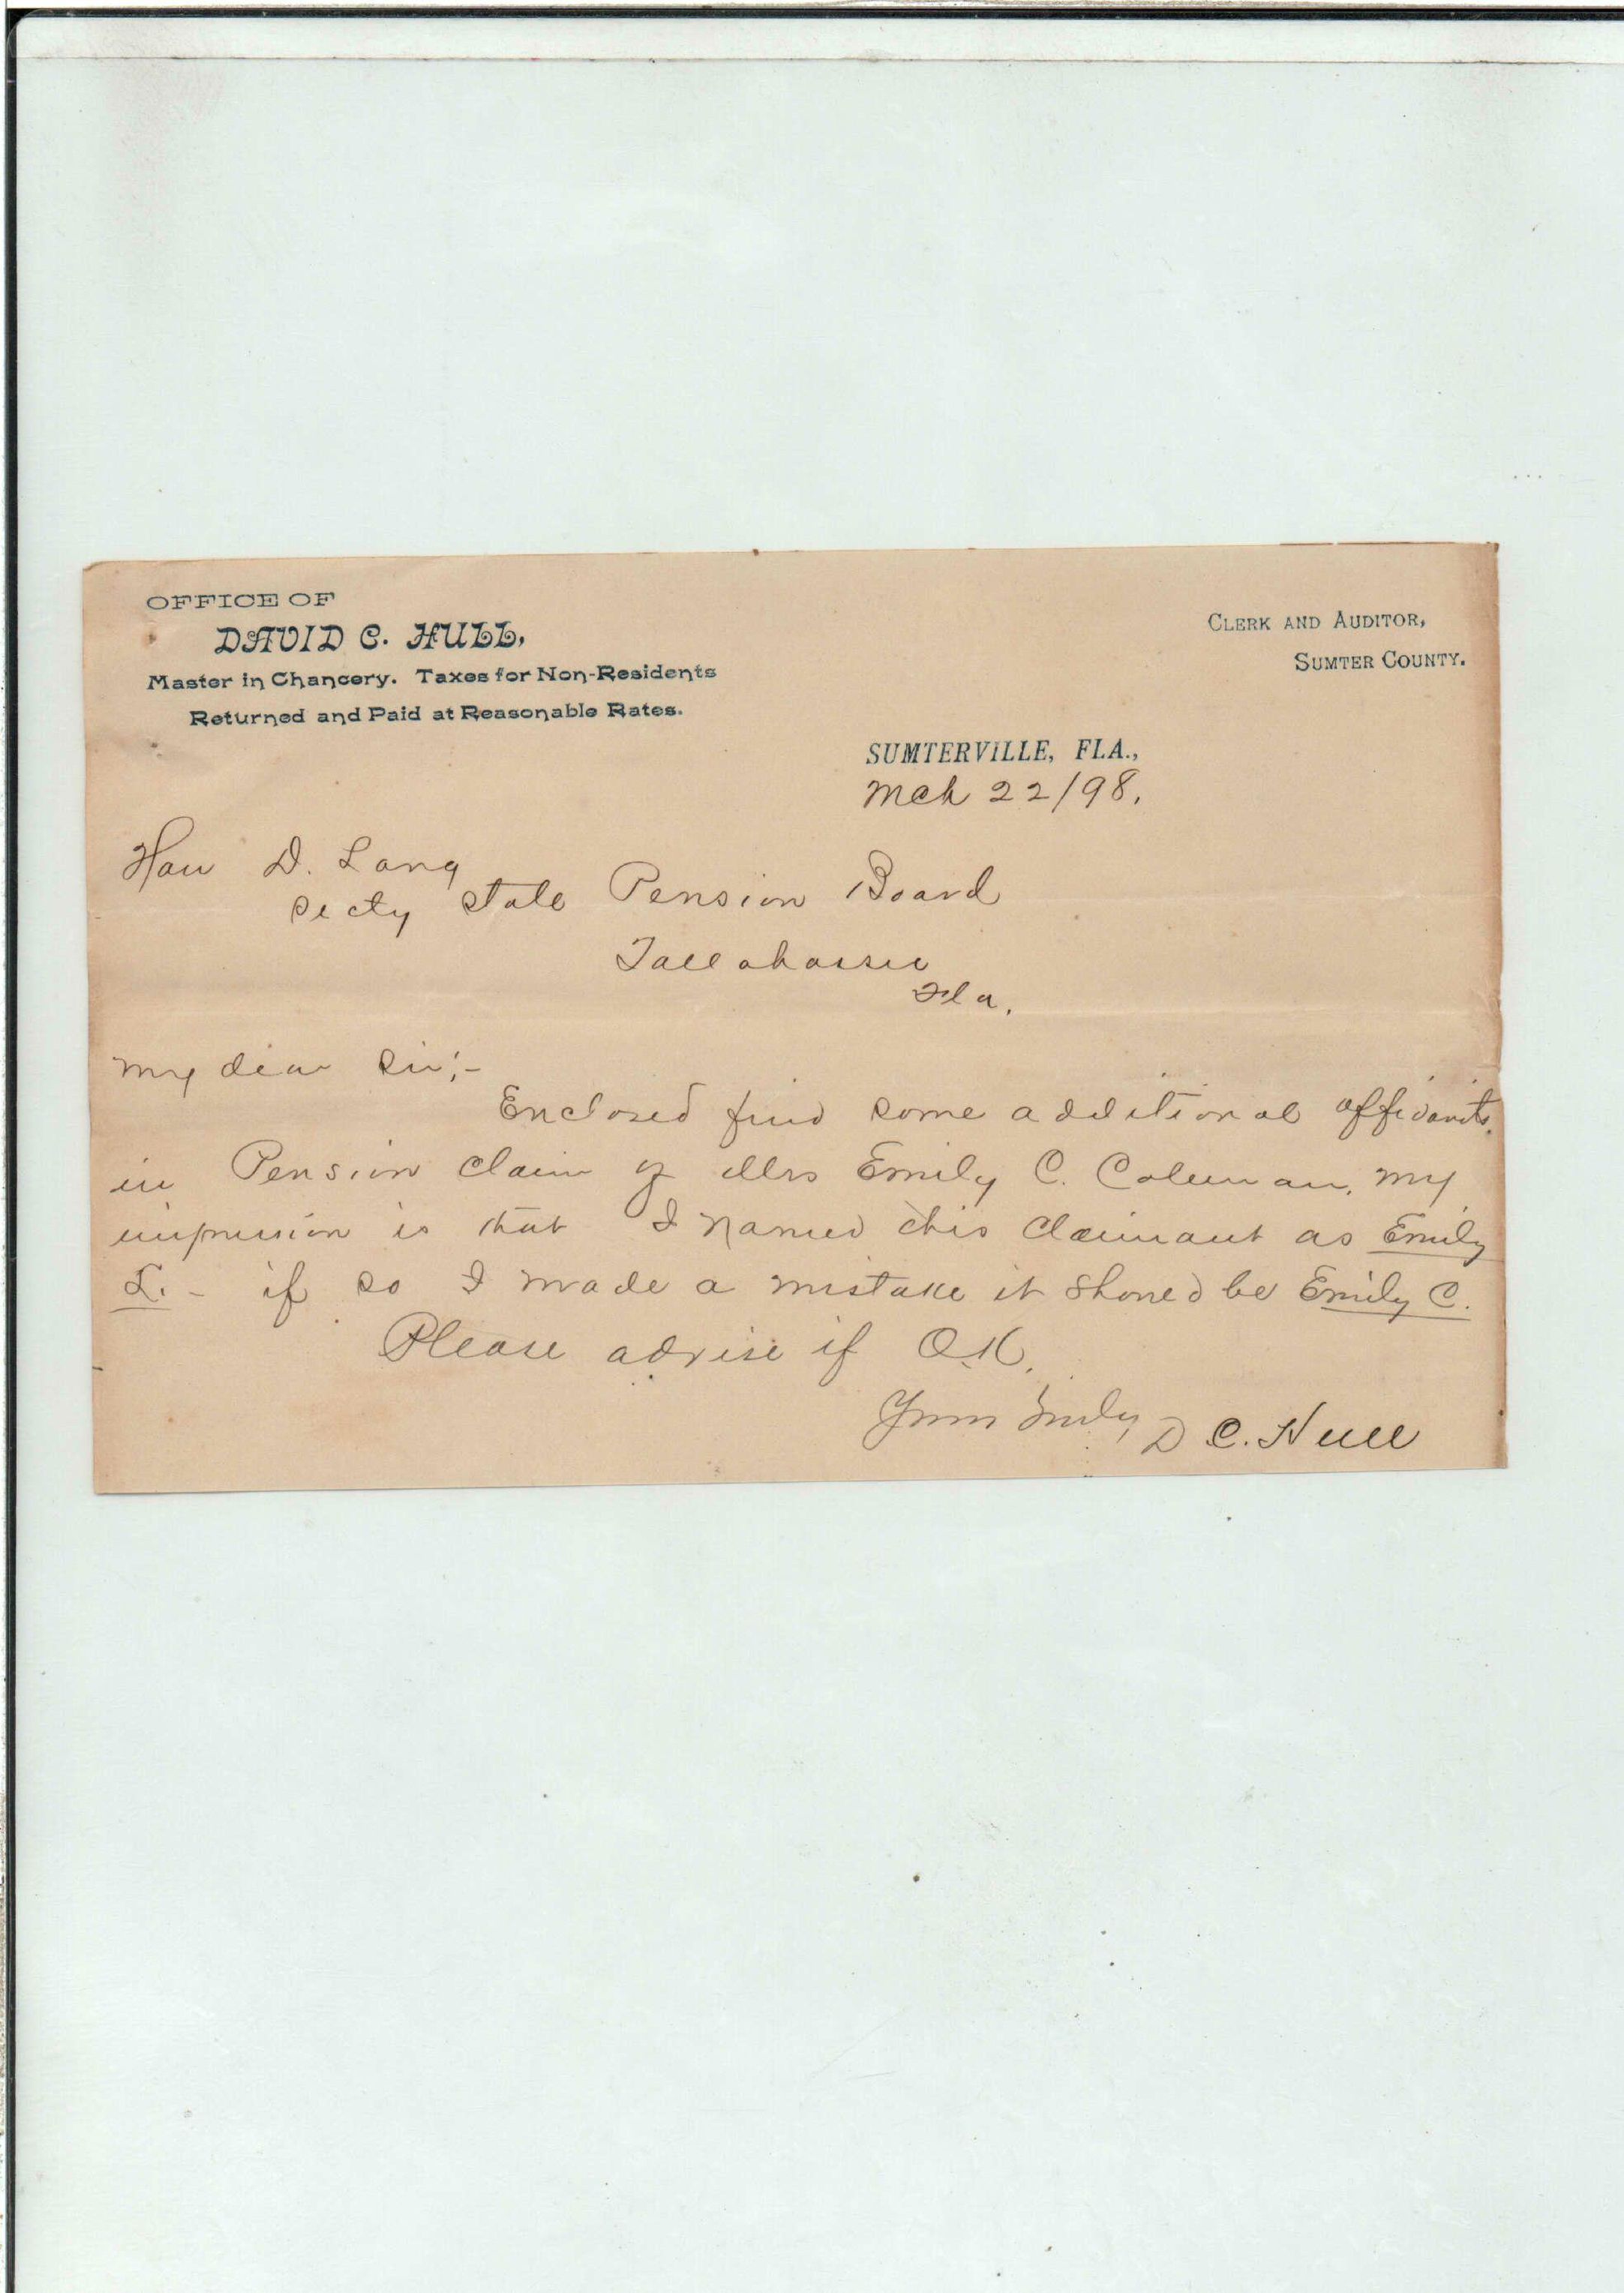 OFFICE OF
DAVID C. HULL,
Master in Chancery. Taxes for Non-Residents
Returned and Paid at Reasonable Rates.
CLERK AND AUDITOR,
SUMTER COUNTY.
SUMTERVILLE, FLA.,
Mch 22/98.
Hon D. Lang
Secty State Pension Board
Tallahassee
Fla.
My dear Sir;-
Enclosed find some additional affidavits
in Pension claim of Mrs Emily C. Coleman, my
impression is that I named this claimant as Emily
L. - if so I made a mistake it should be Emily C.
Please advise if O.K.
Yours truly, D C. Hull